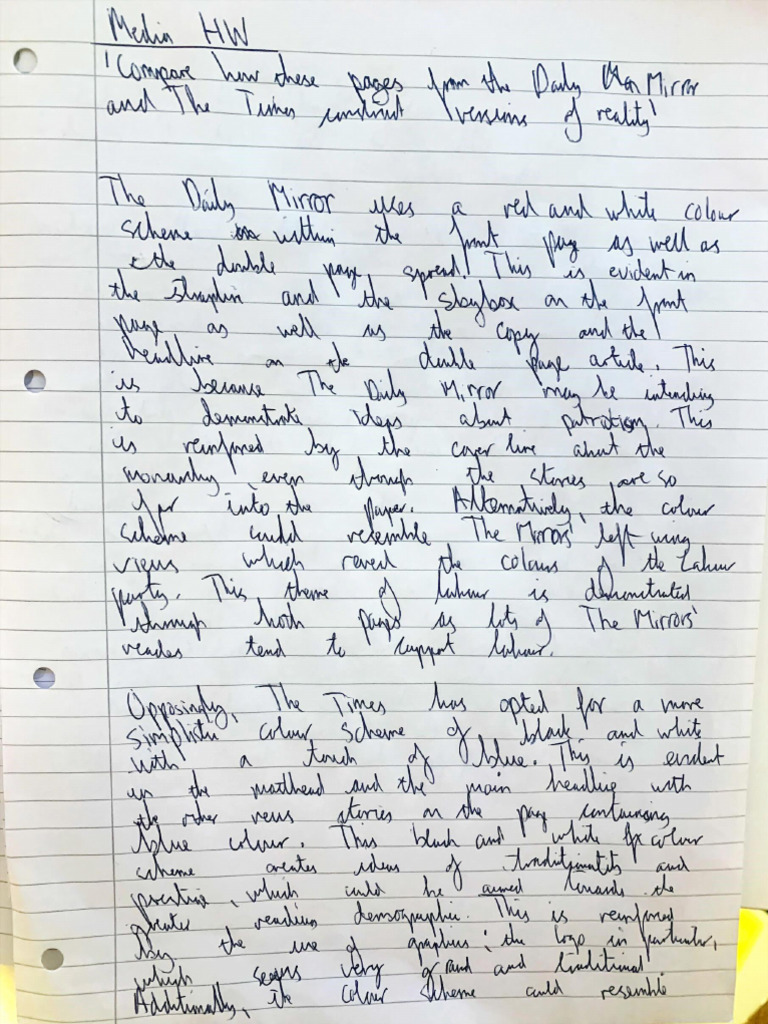 Media HW
'Compare how these pages from the Daily Mirror
and The Times construct versions of reality'
The Daily Mirror uses a red and white colour
scheme within the front page as well as
the double page spread. This is evident in
the straplin and the skybox on the front
page as well as the copy and the
headline on the double page article. This
is because The Daily Mirror may be intending
to demonstrate ideas about patriotism. This
is reinforced by the cover line about the
monarchy, even through the stories are so
far into the paper. Alternatively, the colour
scheme could resemble The Mirrors' left wing
views which reveal the colours of the Labour
party. This theme of labour is demonstrated
through both pages as lots of The Mirrors'
readers tend to support labour.
Opposingly, The Times has opted for a more
simplistic colour scheme of black and white
with a touch of blue. This is evident
in the masthead and the main headline with
the other news stories on the page containing
blue colour. This black and white colour
scheme creates ideas of and
prestige, which could be aimed towards the
greater readers demographic. This is reinforced
by the use of graphics; the logo in particular,
which seems very grand and traditional.
Additionally, the colour scheme could resemble